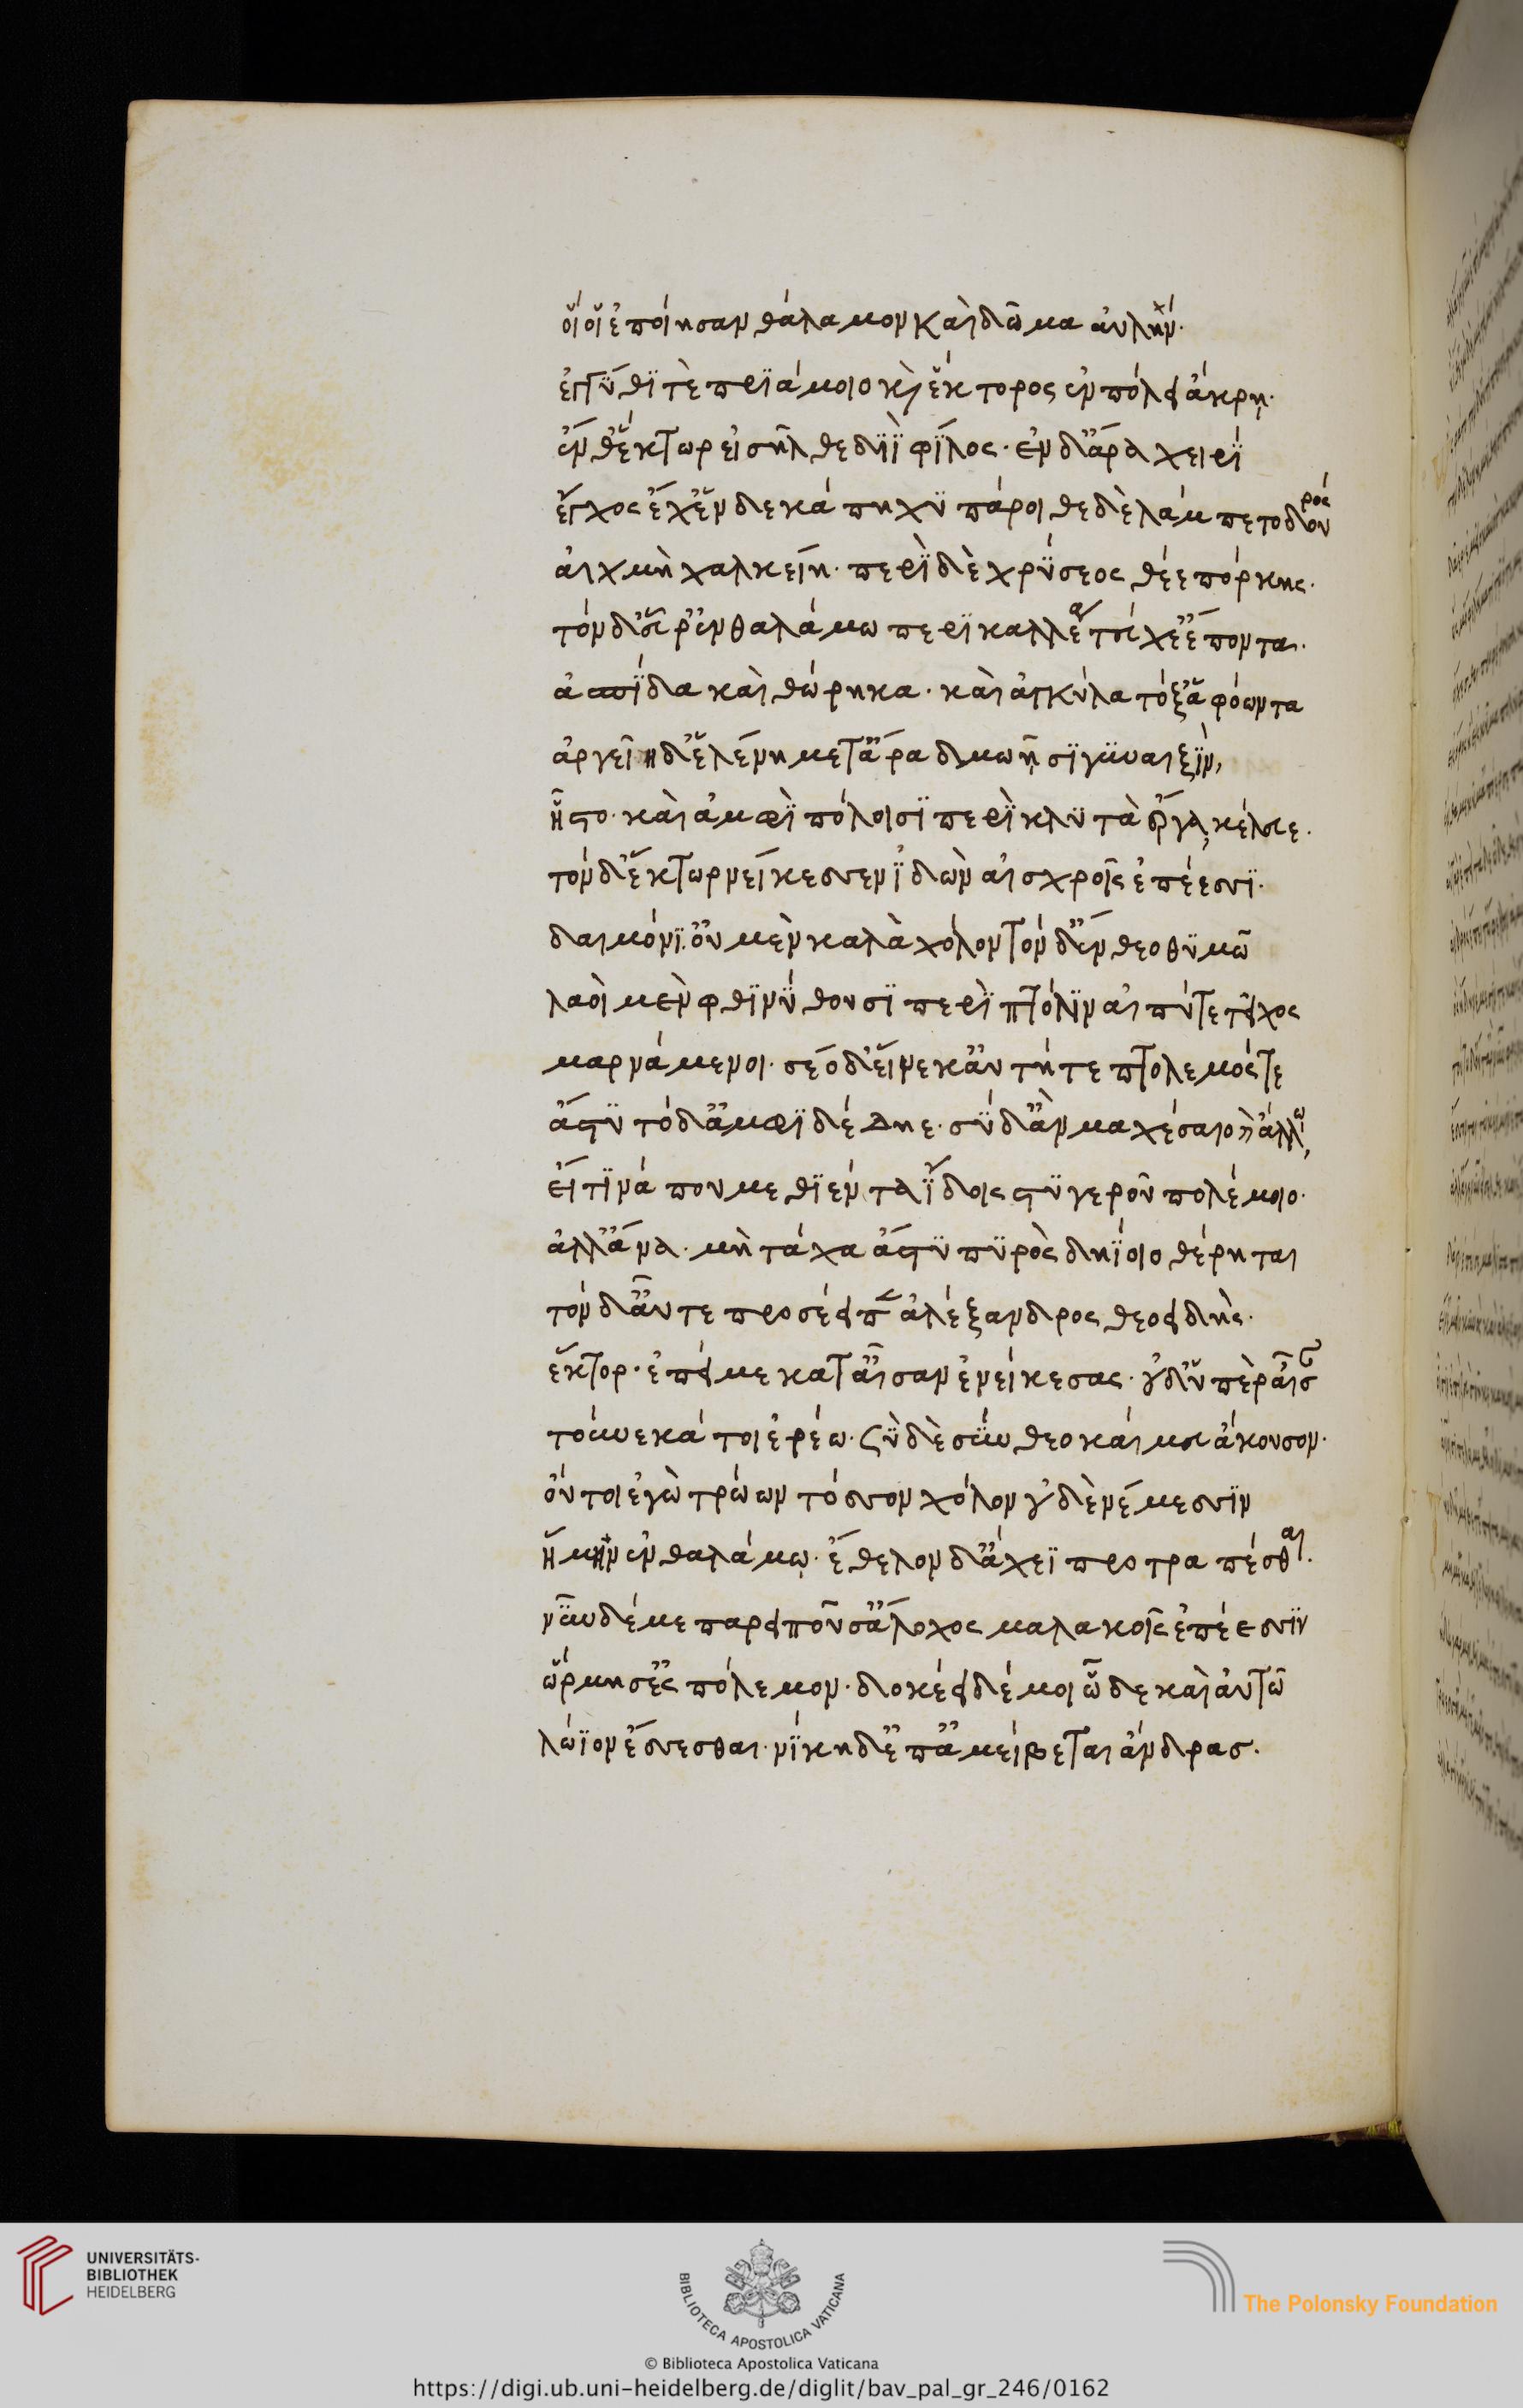 οἵ οἱ ἐποίησαν θάλαμον καὶ δῶμα αὐλήν.
ἐγγύθϊ τὲ πρϊάμοιο κὶ ἕκτορος ἐν πόλει ἄκρη.
ἔνθ' ἕκτωρ εἰσῆλθε διῒ φίλος. ἐν δ' ἄρα χειρῒ
ἔγχος ἔχ' ἑνδεκάπηχϋ πάροιθε δὲ λάμπετο δουρός
αἰχμὴ χαλκείη. περῒ δὲ χρύσεος θέε πόρκης.
τὸν δ' εὗρ' ἐν θαλάμω περϊκαλλέα τεύχε' ἕποντα.
ἀσπίδα καὶ θώρηκα. καὶ ἀγκύλα τόξ' ἀφόωντα
ἀργείη δ' ἑλένη μετ' ἄρα δμωῇσϊ γϋναιξὶν,
ἧστο. καὶ ἀμφϊπόλοισϊ περϊκλϋτὰ ἔργα κέλευε.
τὸν δ' ἕκτωρ νείκεσσεν ἰδὼν αἰσχροῖς ἐπέεσσϊ.
δαιμόνϊ. οὐ μὲν καλὰ χόλον τόνδ' ἔνθεο θϋμῶ
λαοὶ μὲν φθϊνύθουσϊ περῒ πτόλϊν αἰπύ τε τεῖχος
μαρνάμενοι. σέο δ' εἵνεκ' ἀυτή τε πτόλεμός τε
ἄστϋ τόδ' ἀμφϊδέδηε. σὺ δ' ἂν μαχέσαιο κὶ ἄλλω,
εἴ τϊνά που μεθϊέντα ἴδοις στϋγεροῦ πολέμοιο.
ἀλλ' ἄνα. μὴ τάχα ἄστϋ πϋρὸς δηΐοιο θέρηται
τὸν δ' αὖτε προσέειπεν ἀλέξανδρος θεοειδής.
ἕκτορ. ἐπεί με κατ' αἶσαν ἐνείκεσας. οὐδ' ὑπὲρ αἶσαν
τούνεκά τοι ἐρέω. σὺ δὲ σύνθεο καί μευ ἄκουσον.
οὔ τοι ἐγὼ τρώων τόσσον χόλον οὐδὲ νέμεσσϊν
ἥμην ἐν θαλάμῳ. ἔθελον δ' ἄχεϊ προτραπέσθαι.
νῦν δέ με παρειποῦσ' ἄλοχος μαλακοῖς ἐπέεσσϊν
ὥρμησ' ἐς πόλεμον. δοκέει δέ μοι ὧδε καὶ αὐτῶ
λώϊον ἔσσεσθαι. νίκη δ' ἐπαμείβεται ἄνδρας.
UNIVERSITÄTS-
BIBLIOTHEK
HEIDELBERG
BIBLIOTECA APOSTOLICA VATICANA
The Polonsky Foundation
© Biblioteca Apostolica Vaticana
https://digi.ub.uni-heidelberg.de/diglit/bav_pal_gr_246/0162